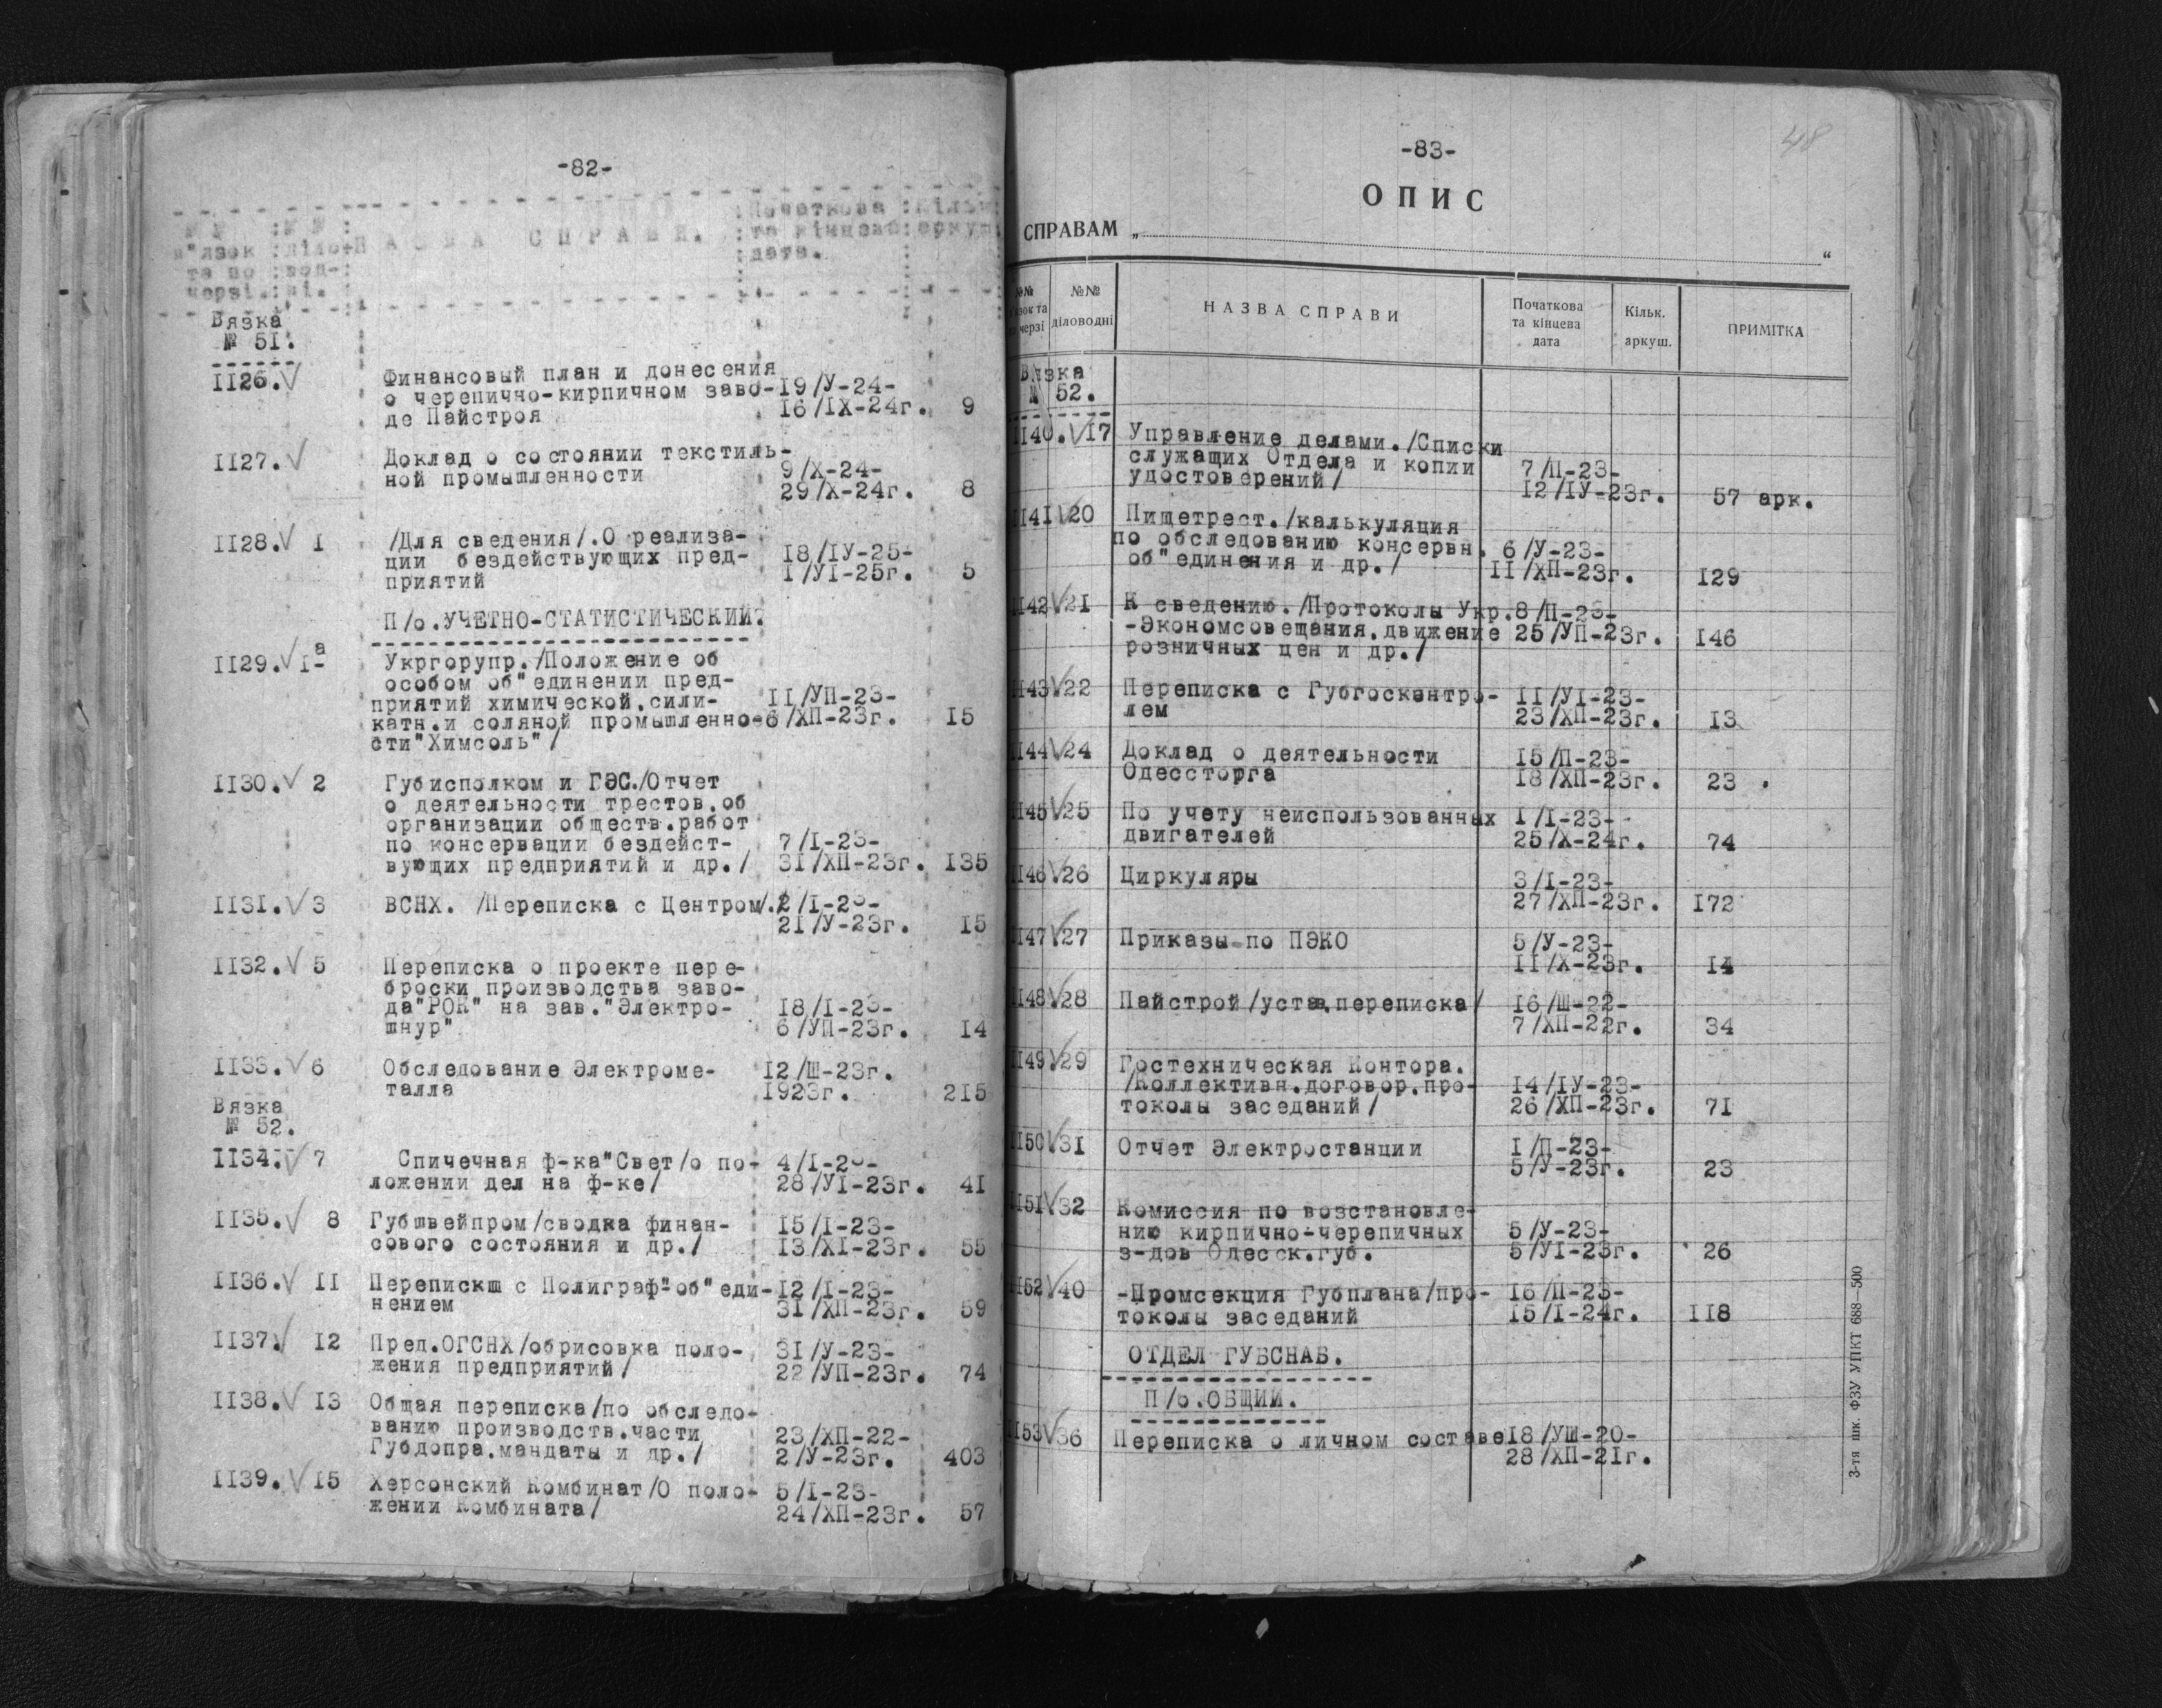 -82-
№ № :№ № : :Початкова :Кільк:
в"язок :діло-Н А З В А С П Р А В И. :та кінцева:аркуш:
та по :вод- : :дата.
черзі.:ні. :
Вязка
№ 51.
1126. Финансовый план и донесения
о черепично-кирпичном заво- 19/У-24-
де Пайстроя 16/IX-24г. 9
1127. Доклад о состоянии текстиль-
ной промышленности 9/X-24-
29/X-24г. 8
1128. 1 /Для сведения/.О реализа-
ции бездействующих пред- 18/IУ-25-
приятий 1/УI-25г. 5
П/о.УЧЕТНО-СТАТИСТИЧЕСКИЙ.
1129. 1-а Укргорупр./Положение об
особом об"единении пред-
приятий химической,сили- II/УП-23-
катн.и соляной промышленно- 6/ХП-23г. 15
сти"Химсоль"/
1130. 2 Губисполком и ГЭС./Отчет
о деятельности трестов,об
организации обществ.работ
по консервации бездейст- 7/I-23-
вующих предприятий и др./ 31/ХП-23г. 135
1131. 3 ВСНХ. /Переписка с Центром/. 2/I-23-
21/У-23г. 15
1132. 5 Переписка о проекте пере-
броски производства заво-
да"РОК" на зав."Электро- 18/I-23-
шнур" 6/УП-23г. 14
1133. 6 Обследование Электроме- 12/Ш-23г.
талла 1923г. 215
Вязка
№ 52.
1134. 7 Спичечная ф-ка"Свет/о по- 4/I-23-
ложении дел на ф-ке/ 28/УI-23г. 41
1135. 8 Губшвейпром/сводка финан- 15/I-23-
сового состояния и др./ 13/XI-23г. 55
1136. 11 Перепискш с Полиграф"-об"еди- 12/I-23-
нением 31/ХП-23г. 59
1137. 12 Пред.ОГСНХ/обрисовка поло- 31/У-23-
жения предприятий/ 22/УП-23г. 74
1138. 13 Общая переписка/по обследо-
ванию производств.части 23/ХП-22-
Губдопра,мандаты и др./ 2/У-23г. 403
1139. 15 Херсонский Комбинат/О поло- 5/I-23-
жении Комбината/ 24/ХП-23г. 57
48
-83-
ОПИС
СПРАВАМ „ “
№№ №№ НАЗВА СПРАВИ Початкова Кільк. ПРИМІТКА
язок та діловодні та кінцева аркуш.
черзі дата
Вязка
№ 52.
1140. 17 Управление делами./Списки
служащих Отдела и копии 7/П-23-
удостоверений/ 12/IУ-23г. 57 арк.
1141 20 Пищетрест./калькуляция
по обследованию консервн. 6/У-23-
об"единения и др./ II/ХП-23г. 129
1142 21 К сведению./Протоколы Укр. 8/П-23-
-Экономсовещания,движение 25/УП-23г. 146
розничных цен и др./
1143 22 Переписка с Губгосконтро- II/УI-23-
лем 23/ХП-23г. 13
1144 24 Доклад о деятельности 15/П-23-
Одессторга 18/ХП-23г. 23 .
1145 25 По учету неиспользованных 1/I-23-
двигателей 25/X-24г. 74
1146 26 Циркуляры 3/I-23-
27/ХП-23г. 172
1147 27 Приказы по ПЭКО 5/У-23-
II/X-23г. 14
1148 28 Пайстрой/устав,переписка/ 16/Ш-22-
7/ХП-22г. 34
1149 29 Гостехническая Контора.
/Коллективн.договор,про- 14/IУ-23-
токолы заседаний/ 26/ХП-23г. 71
1150 31 Отчет Электростанции 1/П-23-
5/У-23г. 23
1151 32 Комиссия по возстановле-
нию кирпично-черепичных 5/У-23-
з-дов Одесск.губ. 5/УI-23г. 26
1152 40 -Промсекция Губплана/про- 16/П-23-
токолы заседаний 15/I-24г. 118
ОТДЕЛ ГУБСНАБ.
П/о.ОБЩИЙ.
1153 36 Переписка о личном составе 18/УШ-20-
28/ХП-21г.
3-тя шк. ФЗУ УПКТ 688—500